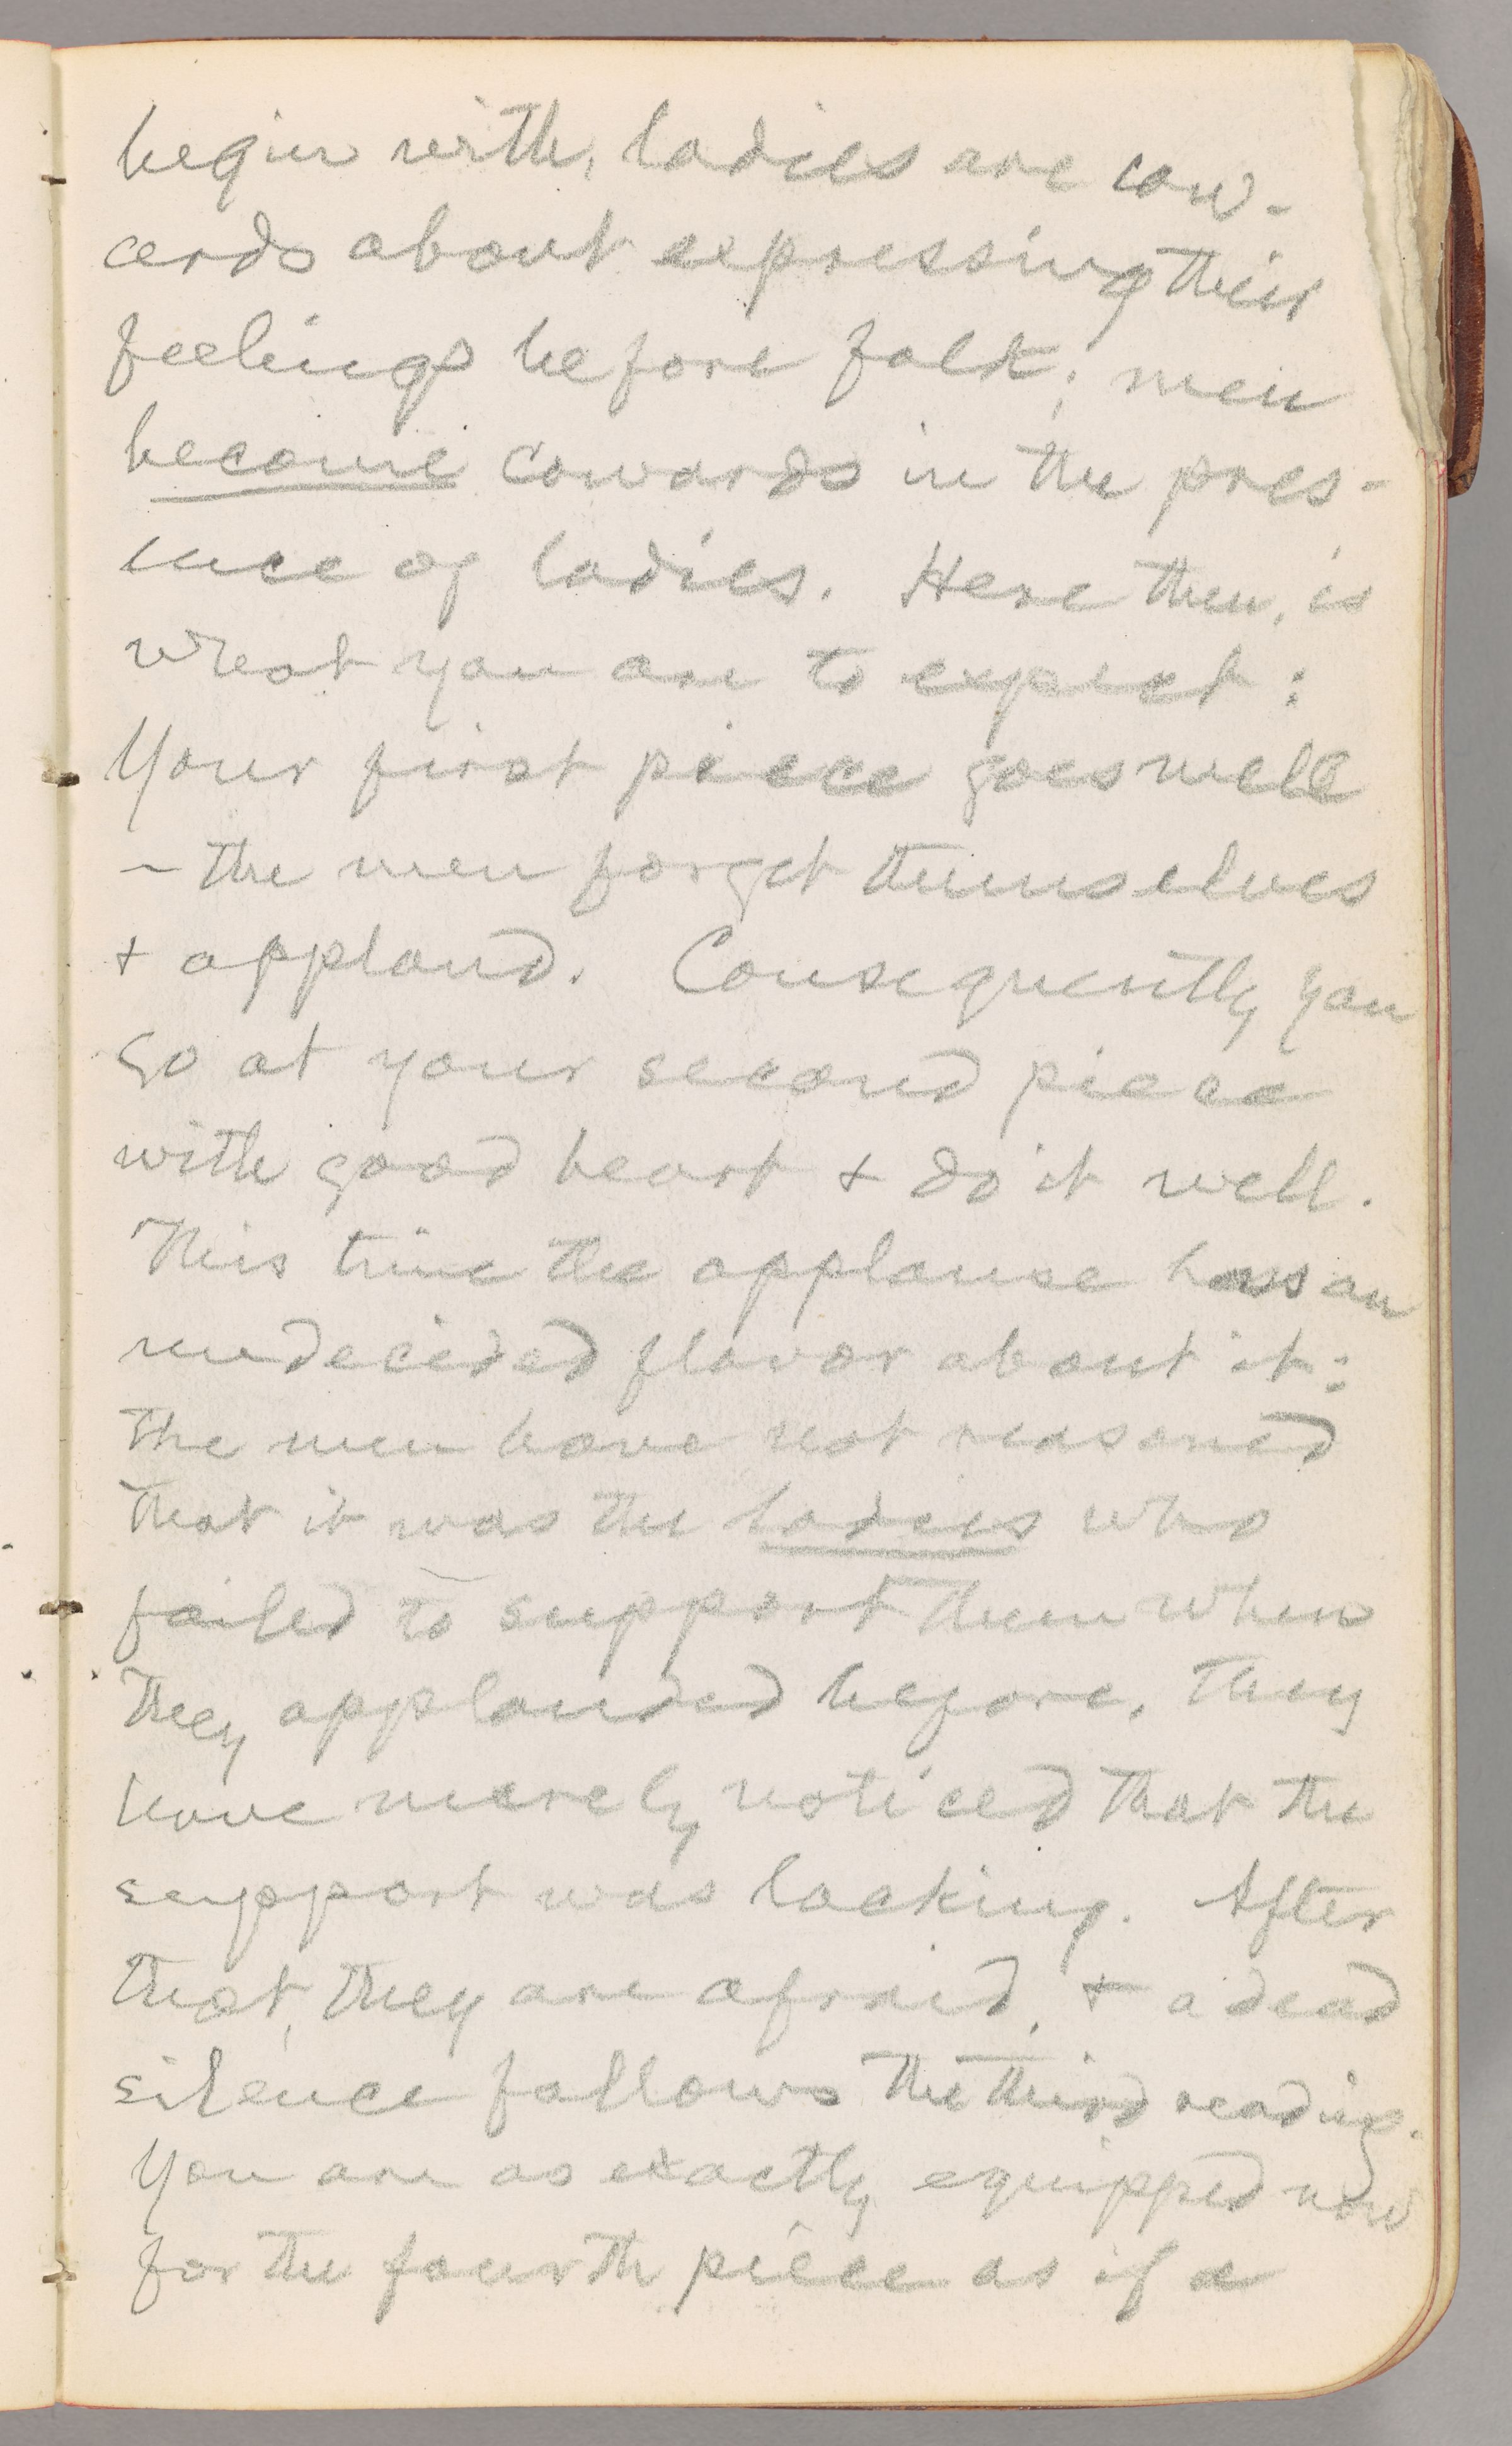 begin with, ladies are cow-
ards about expressing their
feelings before folk; men
become cowards in the pres-
ence of ladies. Here then, is
what you are to expect:
Your first piece goes well
– the men forget themselves
+ applaud. Consequently you
go at your second piece
with good heart + do it well.
This time the applause has an
undecided flavor about it;
the men have not reasoned
that it was the ladies who
failed to support them when
they applauded before, they
have merely noticed that the
support was lacking. After
that, they are afraid, + a dead
silence follows the third reading.
You are as exactly equipped now
for the fourth piece as if a